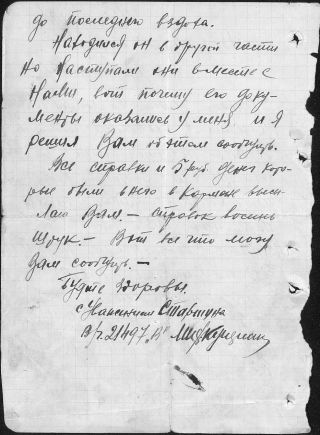 до последнего вздоха.
Находился он в другой части
но наступали они вместе с
Нами, вот почему его доку-
менты оказались у меня и я
решил Вам об этом сообщить.
Все справки и 5 руб. денег кото-
рые были у него в кармане высы-
лаю Вам. – Справок восемь
штук. – Вот все что могу
Вам сообщить. –
Будьте здоровы.
с Уважением Старшина
В/ч. 21497 "А"